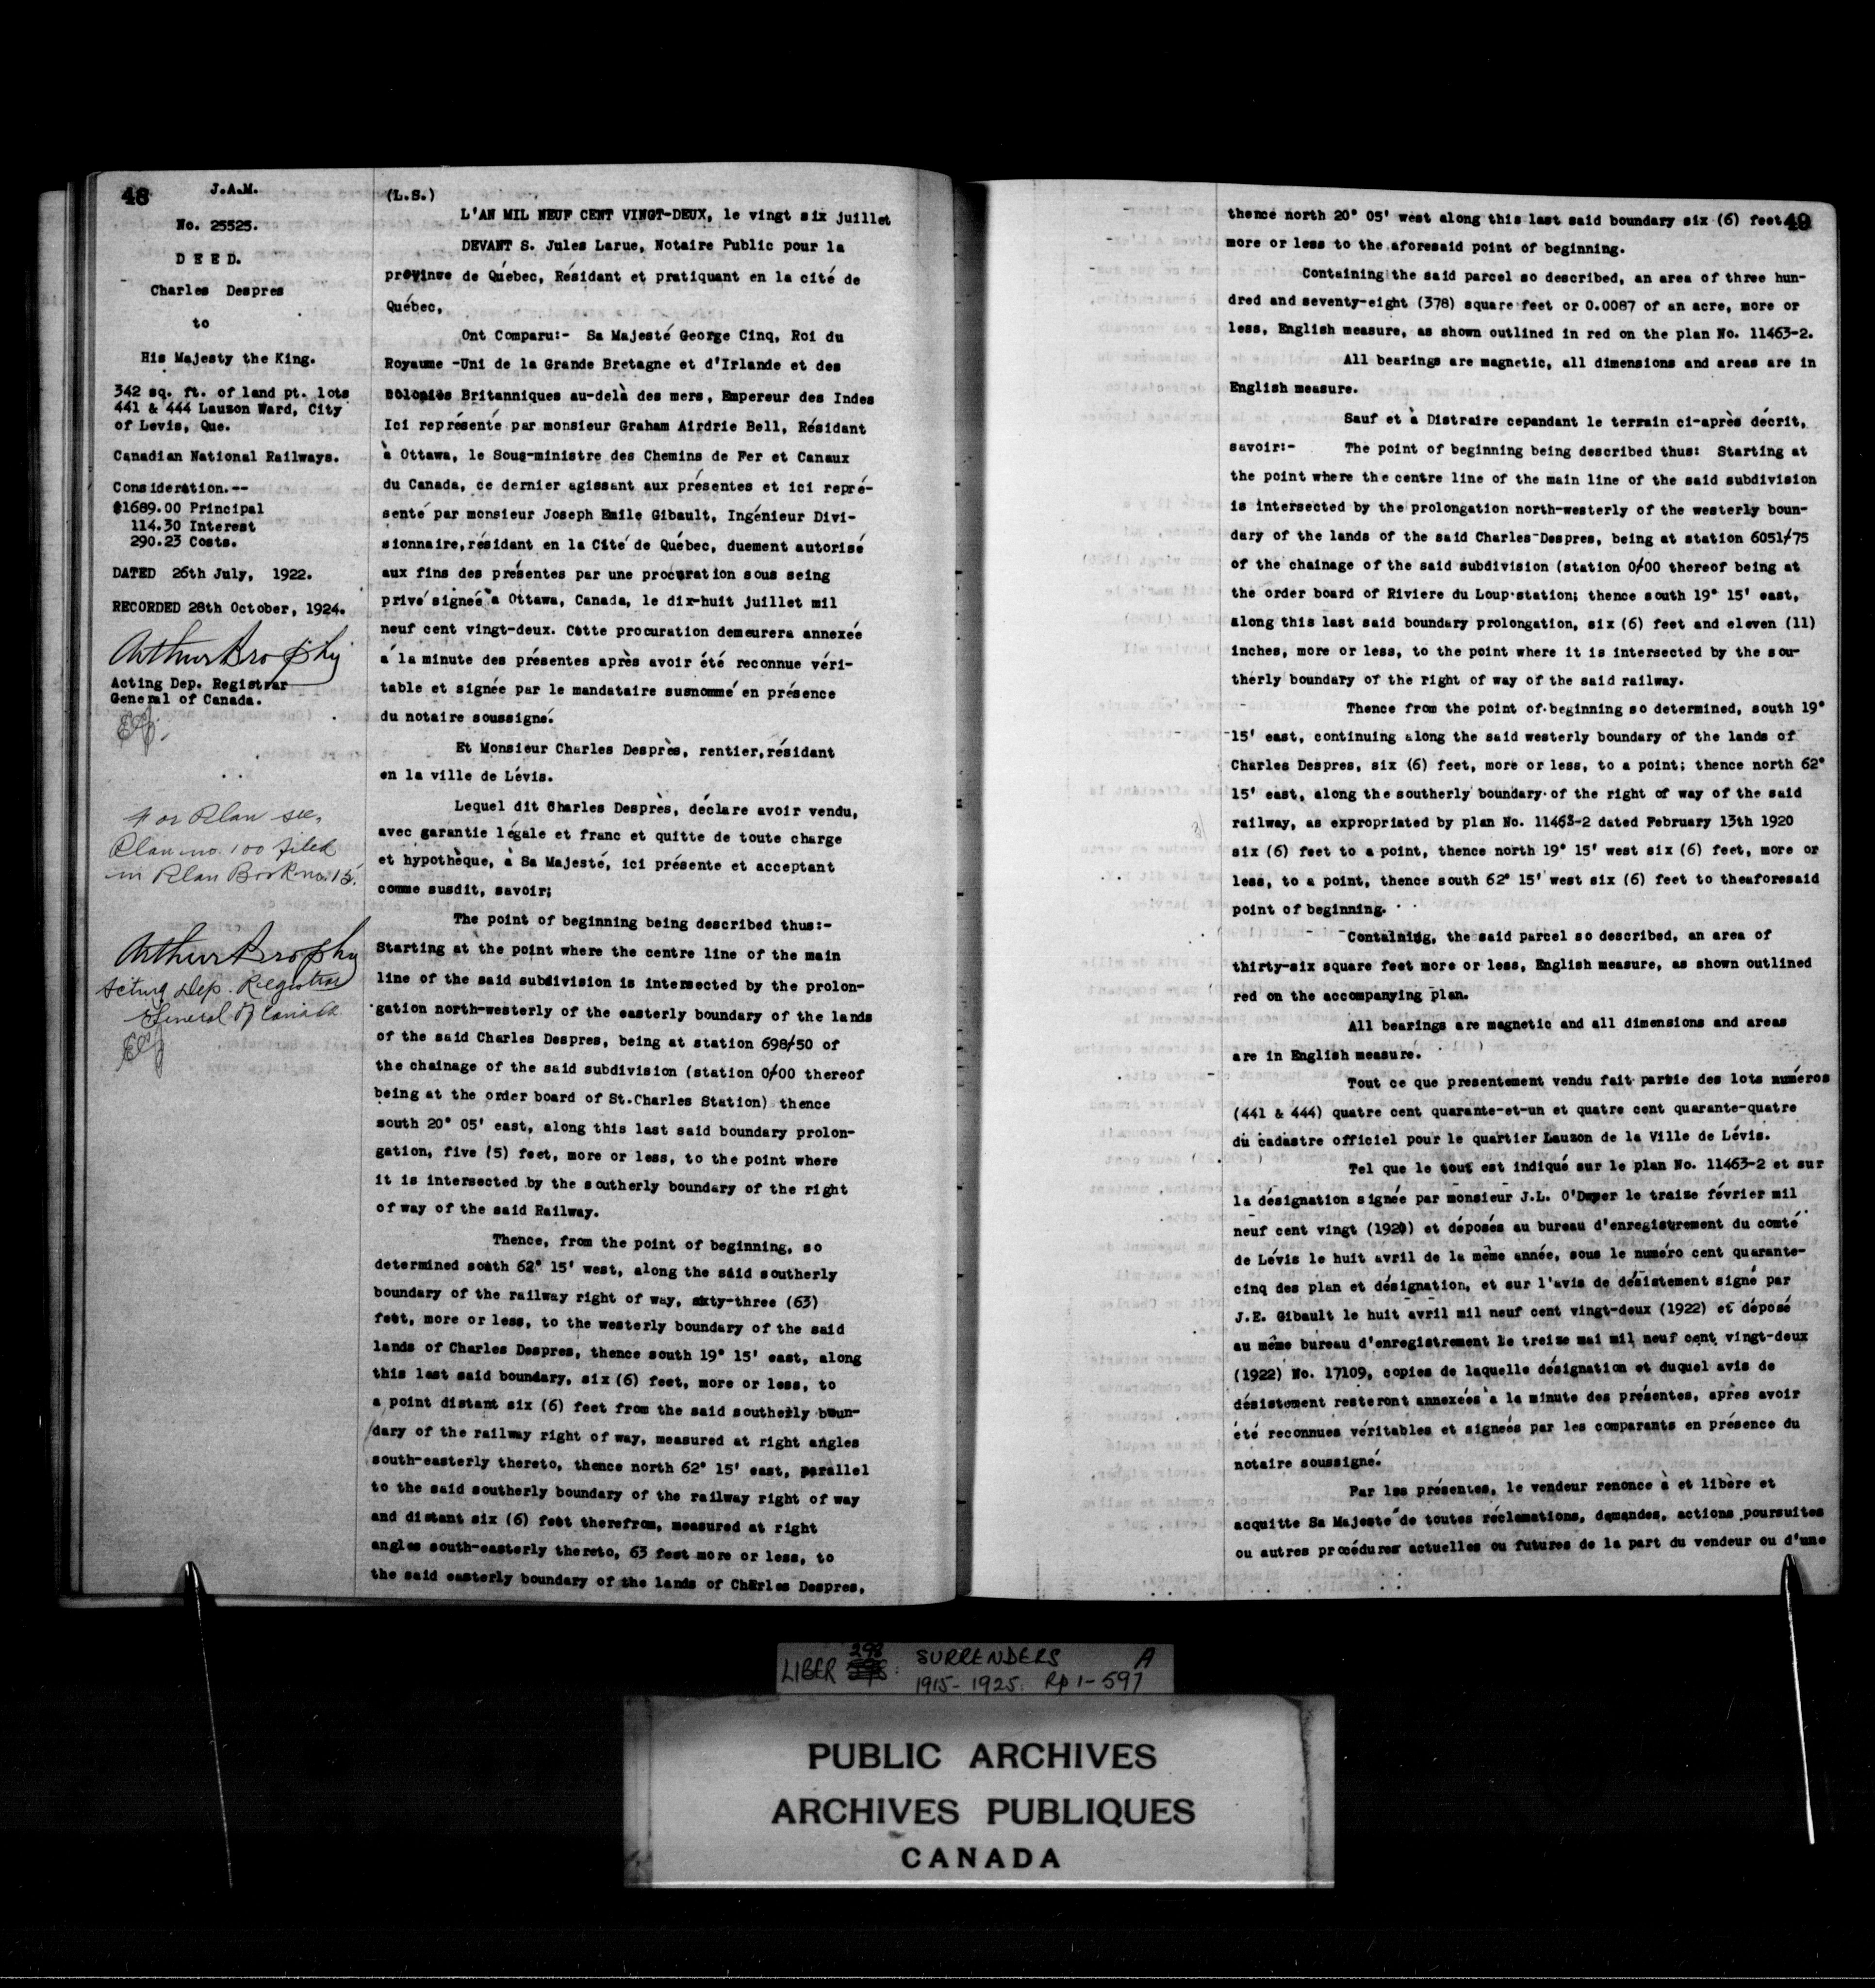 48
J.A.M.
No. 25525.
D E E D.
Charles Despres
to
His Majesty the King.
342 sq. ft. of land pt. lots
441 & 444 Lauzon Ward, City
of Levis, Que.
Canadian National Railways.
Consideration.--
$1689.00 Principal
114.30 Interest
290.23 Costs.
DATED 26th July, 1922.
RECORDED 28th October, 1924.
Arthur Brophy
Acting Dep. Registrar
General of Canada.
For Plan see,
Plan no. 100 filed
in Plan Book no. 15.
Arthur Brophy
Acting Dep. Registrar
General of Canada
(L.S.)
L'AN MIL NEUF CENT VINGT-DEUX, le vingt six juillet
DEVANT S. Jules Larue, Notaire Public pour la
provinwe de Québec, Résidant et pratiquant en la cité de
Québec,
Ont Comparu:- Sa Majesté George Cinq, Roi du
Royaume -Uni de la Grande Bretagne et d'Irlande et des
Colonies Britanniques au-delà des mers, Empereur des Indes
Ici représenté par monsieur Graham Airdrie Bell, Résidant
à Ottawa, le Sous-ministre des Chemins de Fer et Canaux
du Canada, ce dernier agissant aux présentes et ici repré-
senté par monsieur Joseph Emile Gibault, Ingénieur Divi-
sionnaire,résidant en la Cité de Québec, duement autorisé
aux fins des présentes par une procuration sous seing
privé signée à Ottawa, Canada, le dix-huit juillet mil
neuf cent vingt-deux. Cette procuration demeurera annexée
á la minute des présentes après avoir été reconnue véri-
table et signée par le mandataire susnommé en présence
du notaire soussigné.
Et Monsieur Charles Desprès, rentier,résidant
en la ville de Lévis.
Lequel dit Charles Desprès, déclare avoir vendu,
avec garantie légale et franc et quitte de toute charge
et hypothèque, à Sa Majesté, ici présente et acceptant
comme susdit, savoir;
The point of beginning being described thus:-
Starting at the point where the centre line of the main
line of the said subdivision is intersected by the prolon-
gation north-westerly of the easterly boundary of the lands
of the said Charles Despres, being at station 698/50 of
the chainage of the said subdivision (station 0/00 thereof
being at the order board of St.Charles Station) thence
south 20° 05' east, along this last said boundary prolon-
gation, five (5) feet, more or less, to the point where
it is intersected by the southerly boundary of the right
of way of the said Railway.
Thence, from the point of beginning, so
determined south 62° 15' west, along the said southerly
boundary of the railway right of way, sixty-three (63)
feet, more or less, to the westerly boundary of the said
lands of Charles Despres, thence south 19° 15' east, along
this last said boundary, six (6) feet, more or less, to
a point distant six (6) feet from the said southerly boun-
dary of the railway right of way, measured at right angles
south-easterly thereto, thence north 62° 15' east, parallel
to the said southerly boundary of the railway right of way
and distant six (6) feet therefrom, measured at right
angles south-easterly thereto, 63 feet more or less, to
the said easterly boundary of the lands of Charles Despres,
49
thence north 20° 05' west along this last said boundary six (6) feet
more or less to the aforesaid point of beginning.
Containing the said parcel so described, an area of three hun-
dred and seventy-eight (378) square feet or 0.0087 of an acre, more or
less, English measure, as shown outlined in red on the plan No. 11463-2.
All bearings are magnetic, all dimensions and areas are in
English measure.
Sauf et à Distraire cependant le terrain ci-après décrit,
savoir:- The point of beginning being described thus: Starting at
the point where the centre line of the main line of the said subdivision
is intersected by the prolongation north-westerly of the westerly boun-
dary of the lands of the said Charles Despres, being at station 6051/75
of the chainage of the said subdivision (station 0/00 thereof being at
the order board of Riviere du Loup station; thence south 19° 15' east,
along this last said boundary prolongation, six (6) feet and eleven (11)
inches, more or less, to the point where it is intersected by the sou-
therly boundary of the right of way of the said railway.
Thence from the point of beginning so determined, south 19°
15' east, continuing along the said westerly boundary of the lands of
Charles Despres, six (6) feet, more or less, to a point; thence north 62°
15' east, along the southerly boundary of the right of way of the said
railway, as expropriated by plan No. 11463-2 dated February 13th 1920
six (6) feet to a point, thence north 19° 15' west six (6) feet, more or
less, to a point, thence south 62° 15' west six (6) feet to theaforesaid
point of beginning.
Containing, the said parcel so described, an area of
thirty-six square feet more or less, English measure, as shown outlined
red on the accompanying plan.
All bearings are magnetic and all dimensions and areas
are in English measure.
Tout ce que presentement vendu fait partie des lots numéros
(441 & 444) quatre cent quarante-et-un et quatre cent quarante-quatre
du cadastre officiel pour le quartier Lauzon de la Ville de Lévis.
Tel que le tout est indiqué sur le plan No. 11463-2 et sur
la désignation signée par monsieur J.L. O'Dwyer le traize février mil
neuf cent vingt (1920) et déposés au bureau d'enregistrement du comté
de Lévis le huit avril de la même année, sous le numéro cent quarante-
cinq des plan et désignation, et sur l'avis de désistement signé par
J.E. Gibault le huit avril mil neuf cent vingt-deux (1922) et déposé
au même bureau d'enregistrement le treize mai mil neuf cent vingt-deux
(1922) No. 17109, copies de laquelle désignation et duquel avis de
désistement resteront annexées à la minute des présentes, après avoir
été reconnues véritables et signeés par les comparants en présence du
notaire soussigné.
Par les présentes, le vendeur renonce à et libère et
acquitte Sa Majesté de toutes réclamations, demandes, actions poursuites
ou autres procédures actuelles ou futures de la part du vendeur ou d'une
LIBER 298: SURRENDERS A
1915-1925. Rp 1-597
PUBLIC ARCHIVES
ARCHIVES PUBLIQUES
CANADA